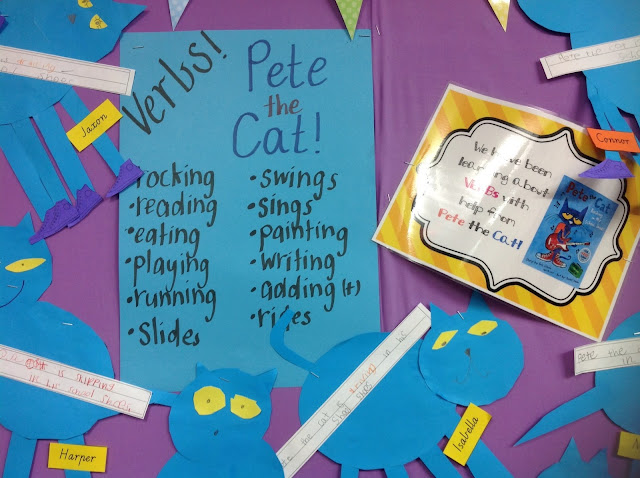 Verbs!
Pete
the
Cat!
rocking
•reading
•eating
•playing
•running
•slides
•swings
•sings
•painting
•writing
•adding (+)
•rides
We have been
learning about
VERBS with
help from
Pete the Cat!
Pete the Cat
Jaxon
Connor
Harper
is
in his school shoes.
Isabella
the cat is
in his
School shoes
Pete the
in